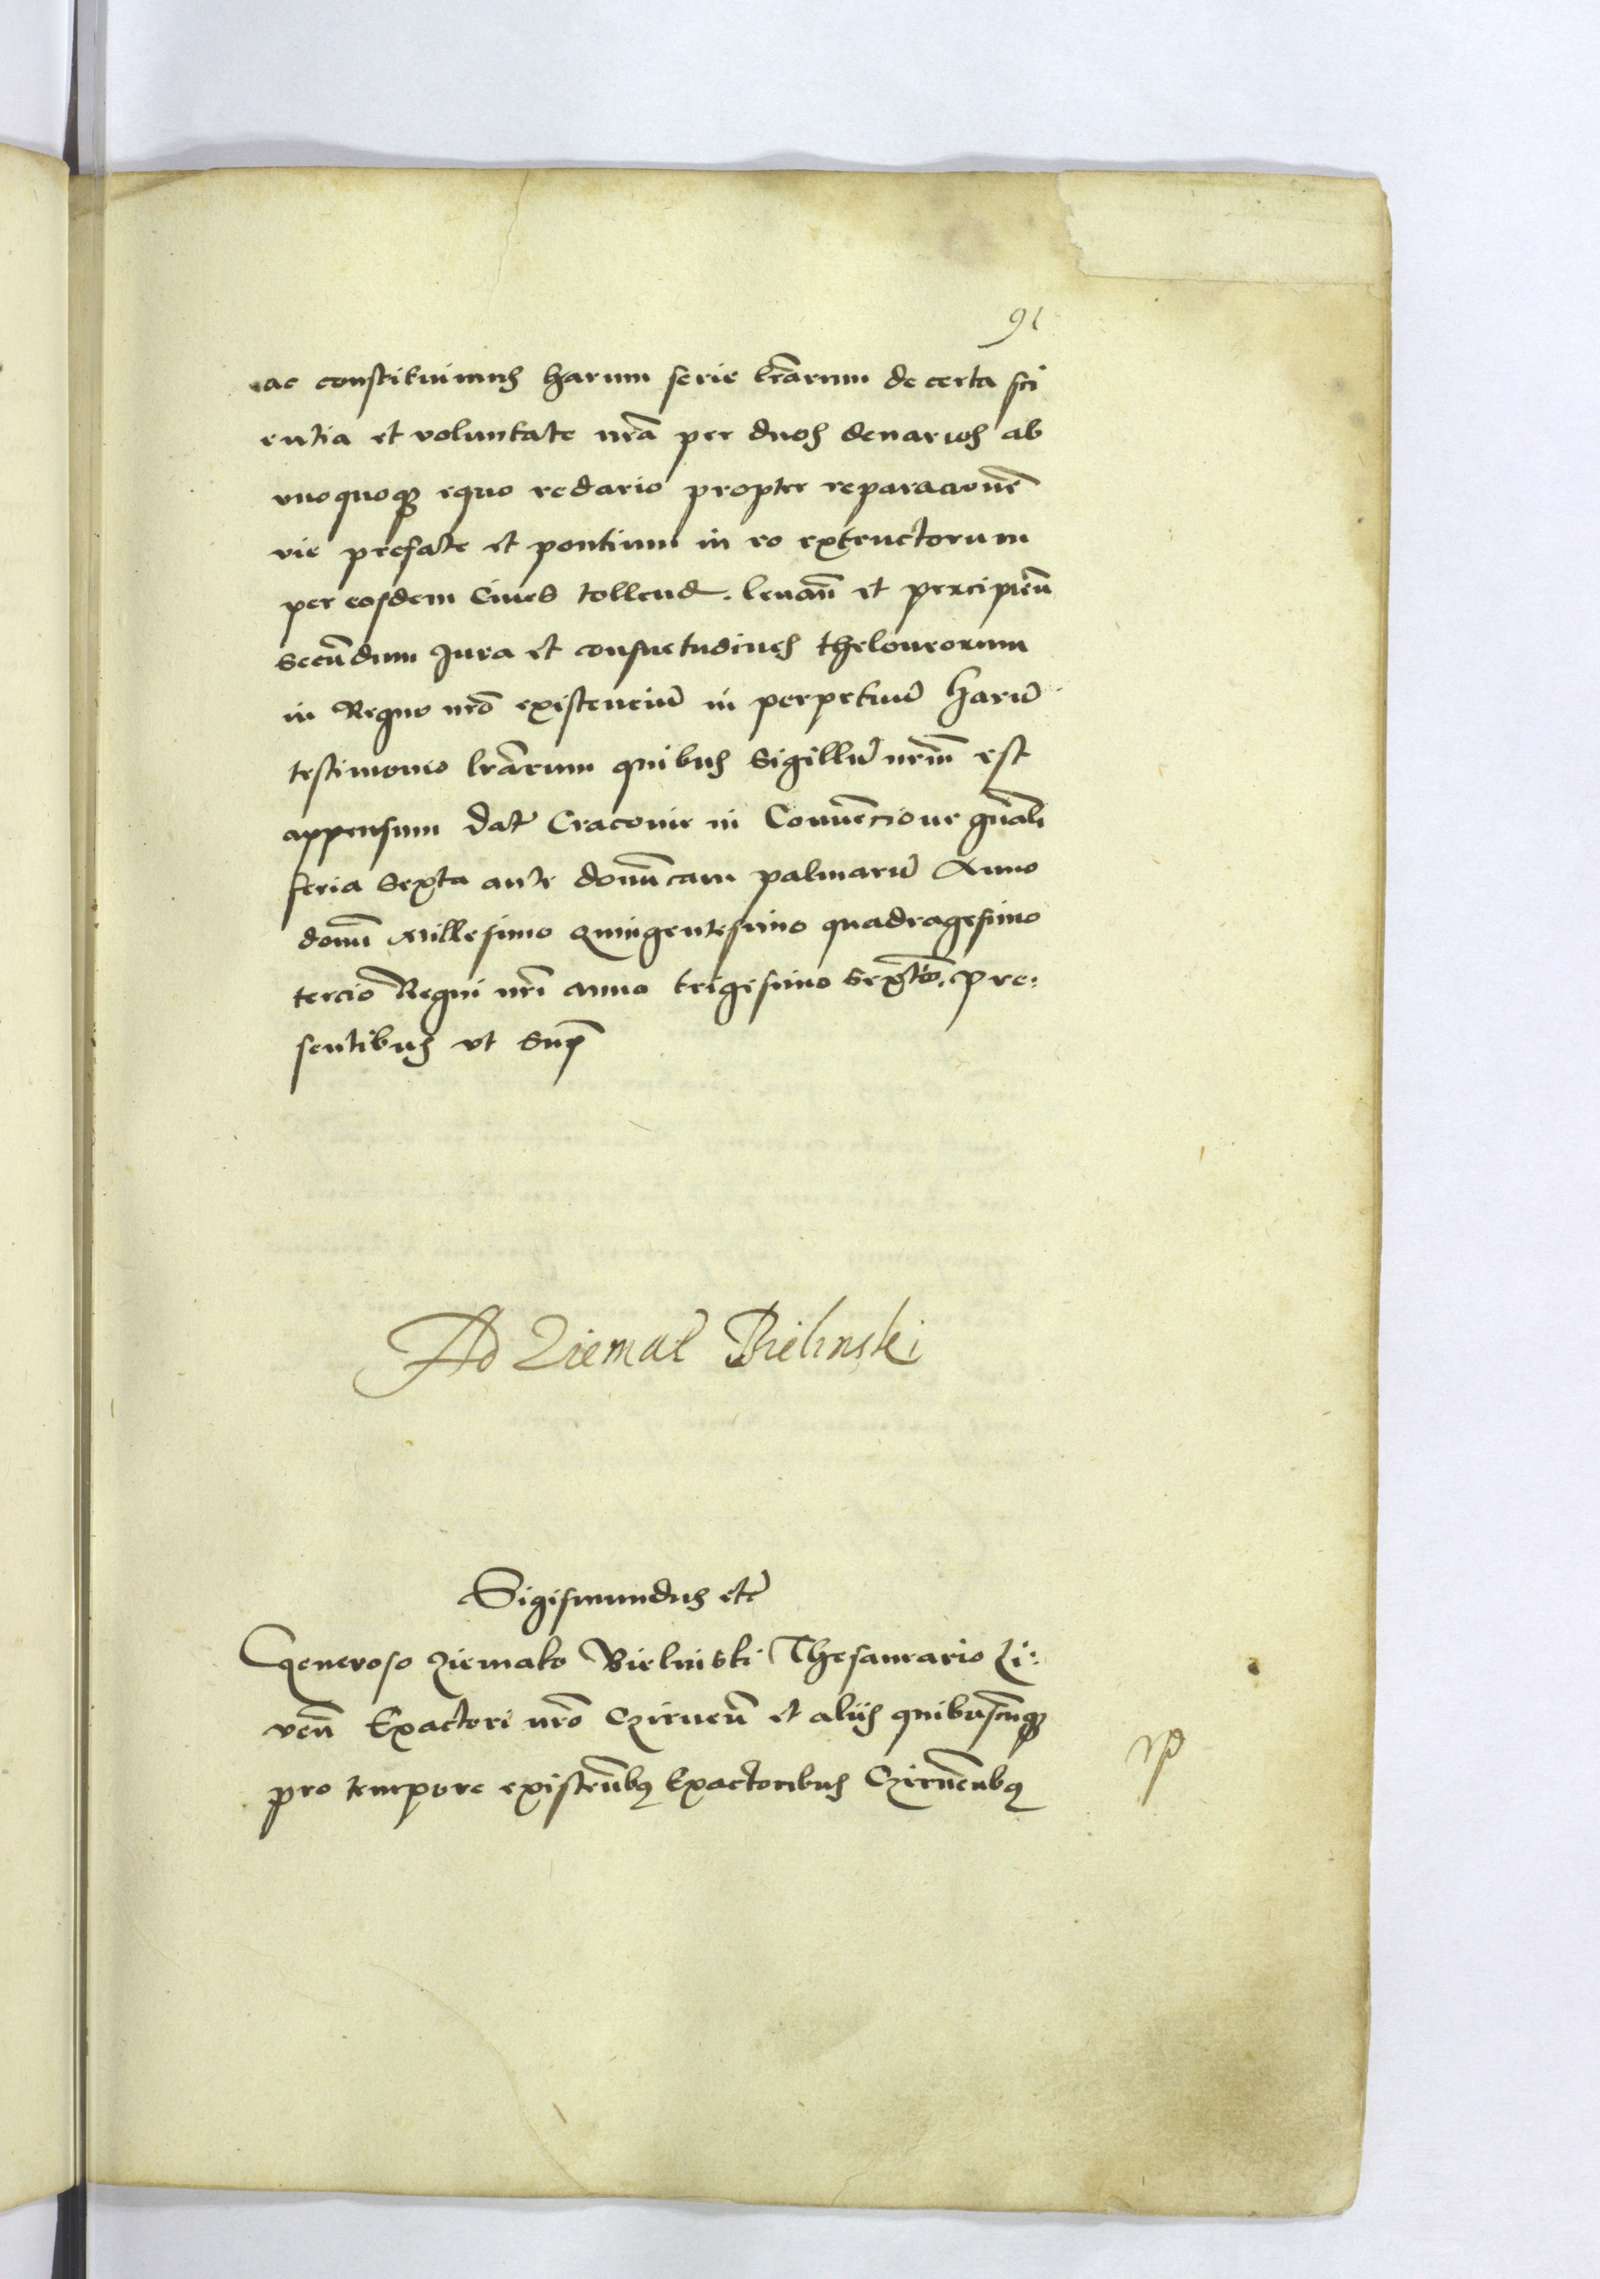 91
ac constituimus harum serie l̃rarum de certa sci
entia et voluntate nr̃a per duos denarios ab
unoquoqꝫ equo redario propter reparacionẽ
vie prefate et pontium in eo extructorum
per eosdem Cives tollend. levañ et percipieñ
Secũdum Jura et consuetudines theloneorum
in Regno nr̃o existenciũ in perpetuũ Harũ
testimonio lr̃arum quibus Sigillũ nrm̃ est
appensum Dat̃ Cracovie in Convẽcione gñali
feria Sexta ante domĩcam palmarũ Anno
domĩ Millesimo Quingentesimo quadragesimo
tercio Regni nr̃i anno trigesimo Sexto. pre:
sentibus ut Sup̃
Ad Ziemak Bielinski
Sigismundus etc̃
Generoso Ziemako Bielinski Thesaurario Zi:
veñ Exactori nr̃o Czirneñ et aliis quibuscũqꝫ
pro tempore existeñbꝫ Exactoribus Czirneñbꝫ